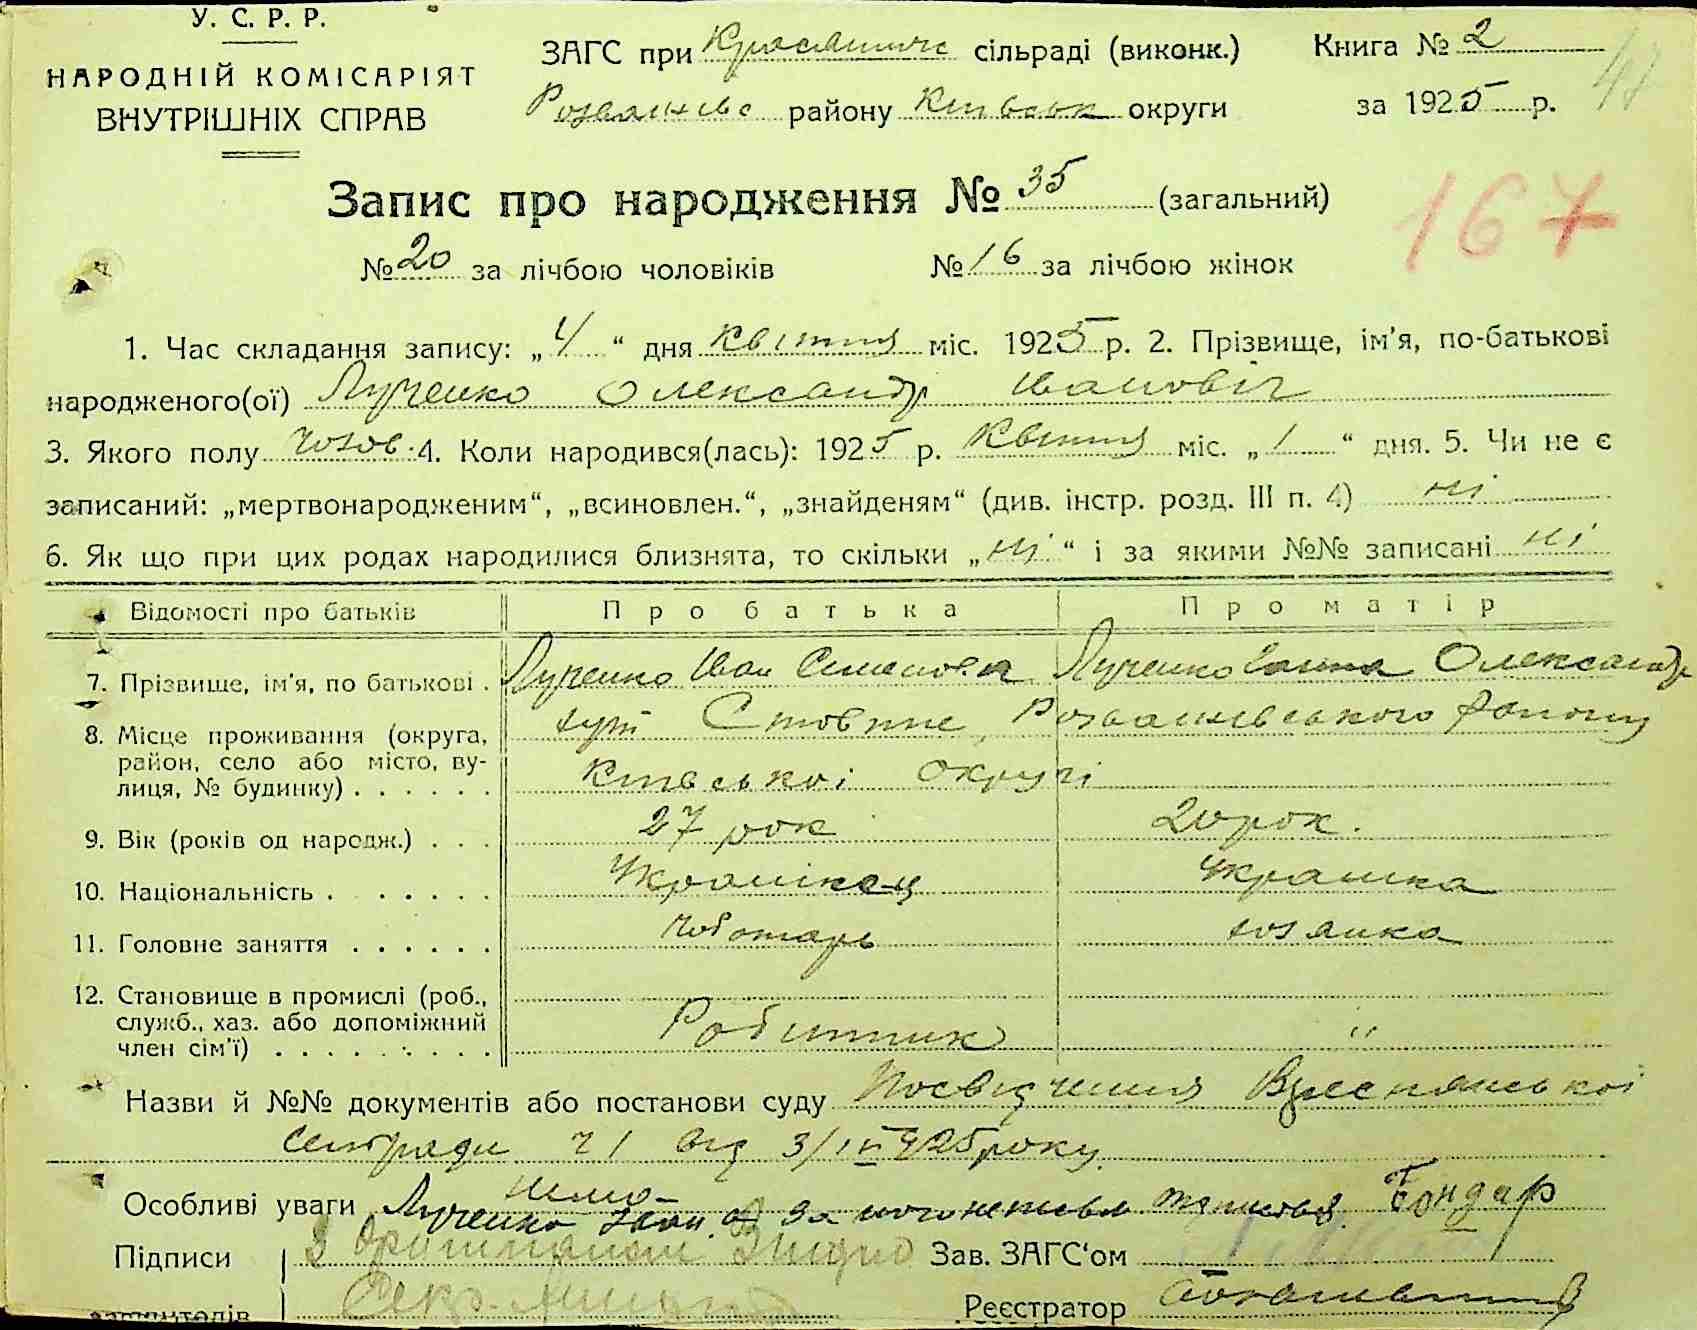 У. С. Р. Р.
НАРОДНІЙ КОМІСАРІЯТ
ВНУТРІШНІХ СПРАВ
ЗАГС при сільраді (виконк.)
району Київськ округи
Книга № 2
за 1925 р.
47
Запис про народження № 35 (загальний)
167
№ 20 за лічбою чоловіків № 16 за лічбою жінок
1. Час складання запису: „4“ дня квітня міс. 1925 р. 2. Прізвище, ім'я, по-батькові
народженого(ої) Луценко Олександр Іванович
3. Якого полу чолов. 4. Коли народився(лась): 1925 р. Квітня міс. „1“ дня. 5. Чи не є
записаний: „мертвонародженим“, „всиновлен.“, „знайденям“ (див. інстр. розд. III п. 4) ні
6. Як що при цих родах народилися близнята, то скільки „ні“ і за якими №№ записані ні
Відомості про батьків Про батька Про матір
7. Прізвище, ім'я, по батькові . Луценко Іван Луценко Ганна Олександр
8. Місце проживання (округа,
район, село або місто, ву-
лиця, № будинку) . . . . . .
хут району
Київської округи
9. Вік (років од народж.) . . . 27 рок 20 рок.
10. Національність . . . . . . Українец Українка
11. Головне заняття . . . . . . Чоботарь хозяйка
12. Становище в промислі (роб.,
служб., хаз. або допоміжний
член сім'ї) . . . . . . . . .
Робитник "
Назви й №№ документів або постанови суду Посвідчення
сельради ч 1 від 3/IV 925 року
Особливі уваги нема
Луценко Іван. а за його неписьм Бондар
Підписи З Оригиналом Зав. ЗАГС'ом
заявителів Секр. Реєстратор